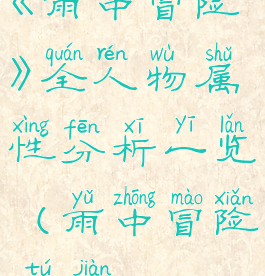 《雨中冒险
quán rén wù shǔ
》全人物属
xìng fēn xī yī lǎn
性分析一览
yǔ zhōng mào xiǎn
（雨中冒险
tú jiàn